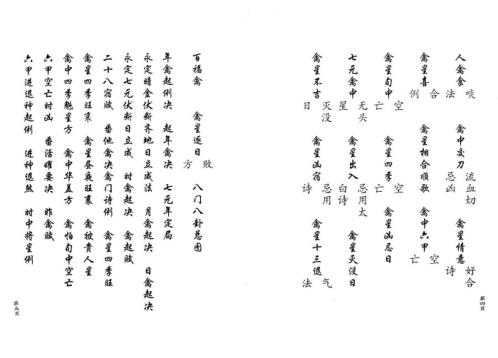 人禽食啖法 禽中交刀流血切忌凶 禽星情意好合詩
禽星喜合例 禽星相合順歌 禽中六甲空亡
禽星旬中空亡 禽星四季忌用 禽星凶忌日
七元禽中 禽星出入 禽星灭没日
禽星不吉日 禽星凶宿詩 禽星十三退氣法
第四頁
百福禽 禽星逐日敗方 八门八卦总图
年禽起例决 起年禽决 七元年定局
永定暗金伏断齐地日立成法 月禽起决 日禽起决
永定七元伏断日立成 时禽起决 禽起賊
二十八宿賊 番他禽决禽门诗例 禽星四季旺
禽星四季旺衰 禽星昼夜旺衰 禽拔貴人星
禽中四季魁星方 禽中华盖方 禽怕旬中空亡
六甲空亡时凶 番活曜要决 昨禽賊
六甲進退神起例 進神退煞 时中将星例
第五頁